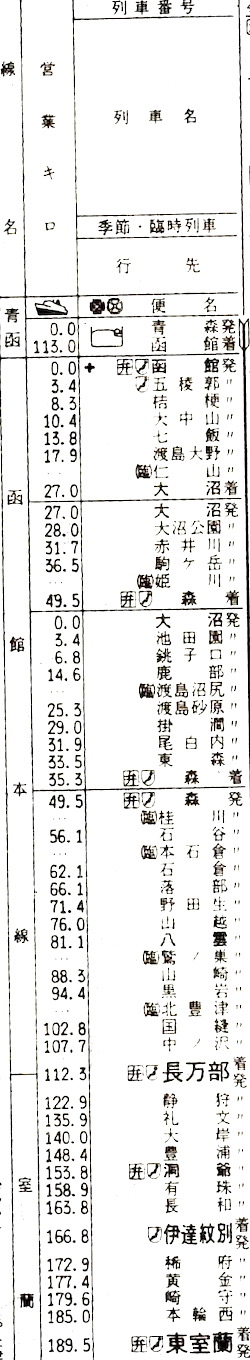 列車番号
線名
営業キロ
列車名
季節・臨時列車
行先
便名
青函
0.0 青森発
113.0 函館着
函館本線
0.0 弁 函館発
3.4 五稜郭〃
8.3 桔梗〃
10.4 大中山〃
13.8 七飯〃
17.9 渡島大野〃
… (臨)仁山〃
27.0 大沼着
27.0 大沼発
28.0 大沼公園〃
31.7 赤井川〃
36.5 駒ヶ岳〃
… (臨)姫川〃
49.5 弁 森着
0.0 大沼発
3.4 池田園〃
6.8 銚子口〃
14.6 鹿部〃
… (臨)渡島沼尻〃
25.3 渡島砂原〃
29.0 掛澗〃
31.9 尾白内〃
33.5 東森〃
35.3 弁 森着
49.5 弁 森発
… (臨)桂川〃
56.1 石谷〃
… (臨)本石倉〃
62.1 石倉〃
66.1 落部〃
71.4 野田生〃
76.0 山越〃
81.1 八雲〃
… (臨)鷲ノ巣〃
88.3 山崎〃
94.4 黒岩〃
… (臨)北豊津〃
102.8 国縫〃
107.7 中ノ沢〃
112.3 弁 長万部着発
室蘭
122.9 静狩〃
135.9 礼文〃
140.0 大岸〃
148.4 豊浦〃
153.8 弁 洞爺〃
158.9 有珠〃
163.8 長和〃
166.8 伊達紋別着発
172.9 稀府〃
177.4 黄金〃
179.6 崎守〃
185.0 本輪西〃
189.5 弁 東室蘭着発